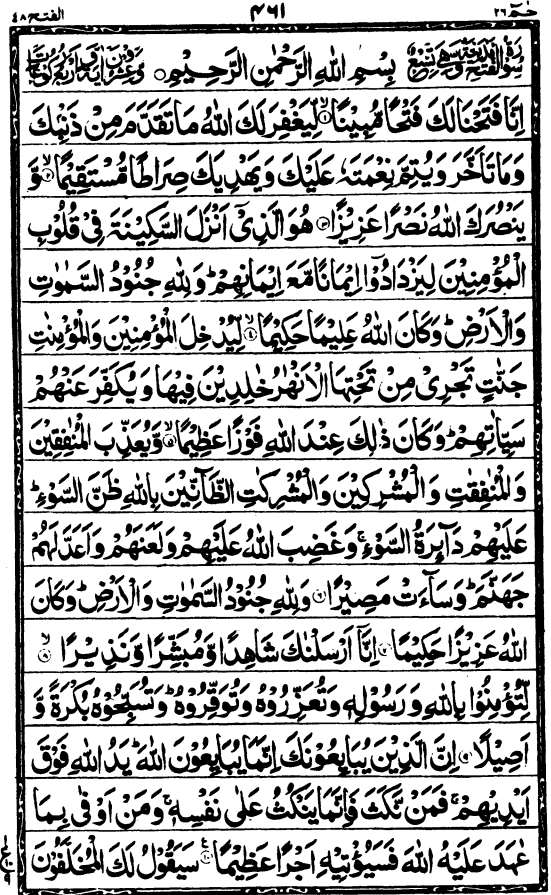 حٰمٓ ٢٦ ٤٦١ الفتح ٤٨
بِسْمِ اللهِ الرَّحْمٰنِ الرَّحِيْمِ
اِنَّا فَتَحْنَا لَكَ فَتْحًا مُّبِيْنًا ۙ‏﴿۱﴾ لِّيَغْفِرَ لَكَ اللهُ مَا تَقَدَّمَ مِنْ ذَنْۢبِكَ
وَمَا تَاَخَّرَ وَيُتِمَّ نِعْمَتَهٗ عَلَيْكَ وَيَهْدِيَكَ صِرَاطًا مُّسْتَقِيْمًا ۙ‏﴿۲﴾ وَّ
يَنْصُرَكَ اللهُ نَصْرًا عَزِيْزًا ‏﴿۳﴾ هُوَ الَّذِيْۤ اَنْزَلَ السَّكِيْنَةَ فِيْ قُلُوْبِ
الْمُؤْمِنِيْنَ لِيَزْدَادُوْۤا اِيْمَانًا مَّعَ اِيْمَانِهِمْ ؕ وَلِلّٰهِ جُنُوْدُ السَّمٰوٰتِ
وَالْاَرْضِ ؕ وَكَانَ اللهُ عَلِيْمًا حَكِيْمًا ۙ‏﴿۴﴾ لِّيُدْخِلَ الْمُؤْمِنِيْنَ وَالْمُؤْمِنٰتِ
جَنّٰتٍ تَجْرِيْ مِنْ تَحْتِهَا الْاَنْهٰرُ خٰلِدِيْنَ فِيْهَا وَيُكَفِّرَ عَنْهُمْ
سَيِّاٰتِهِمْ ؕ وَكَانَ ذٰلِكَ عِنْدَ اللهِ فَوْزًا عَظِيْمًا ۙ‏﴿۵﴾ وَّيُعَذِّبَ الْمُنٰفِقِيْنَ
وَالْمُنٰفِقٰتِ وَالْمُشْرِكِيْنَ وَالْمُشْرِكٰتِ الظَّآنِّيْنَ بِاللهِ ظَنَّ السَّوْءِ ؕ
عَلَيْهِمْ دَآئِرَةُ السَّوْءِ ۚ وَغَضِبَ اللهُ عَلَيْهِمْ وَلَعَنَهُمْ وَاَعَدَّ لَهُمْ
جَهَنَّمَ ؕ وَسَآءَتْ مَصِيْرًا ‏﴿۶﴾ وَلِلّٰهِ جُنُوْدُ السَّمٰوٰتِ وَالْاَرْضِ ؕ وَكَانَ
اللهُ عَزِيْزًا حَكِيْمًا ‏﴿۷﴾ اِنَّاۤ اَرْسَلْنٰكَ شَاهِدًا وَّمُبَشِّرًا وَّنَذِيْرًا ۙ‏﴿۸﴾
لِّتُؤْمِنُوْا بِاللهِ وَرَسُوْلِهٖ وَتُعَزِّرُوْهُ وَتُوَقِّرُوْهُ ؕ وَتُسَبِّحُوْهُ بُكْرَةً وَّ
اَصِيْلًا ‏﴿۹﴾ اِنَّ الَّذِيْنَ يُبَايِعُوْنَكَ اِنَّمَا يُبَايِعُوْنَ اللهَ ؕ يَدُ اللهِ فَوْقَ
اَيْدِيْهِمْ ۚ فَمَنْ نَّكَثَ فَاِنَّمَا يَنْكُثُ عَلٰى نَفْسِهٖ ۚ وَمَنْ اَوْفٰى بِمَا
عٰهَدَ عَلَيْهُ اللهَ فَسَيُؤْتِيْهِ اَجْرًا عَظِيْمًا ‏﴿۱۰﴾ سَيَقُوْلُ لَكَ الْمُخَلَّفُوْنَ